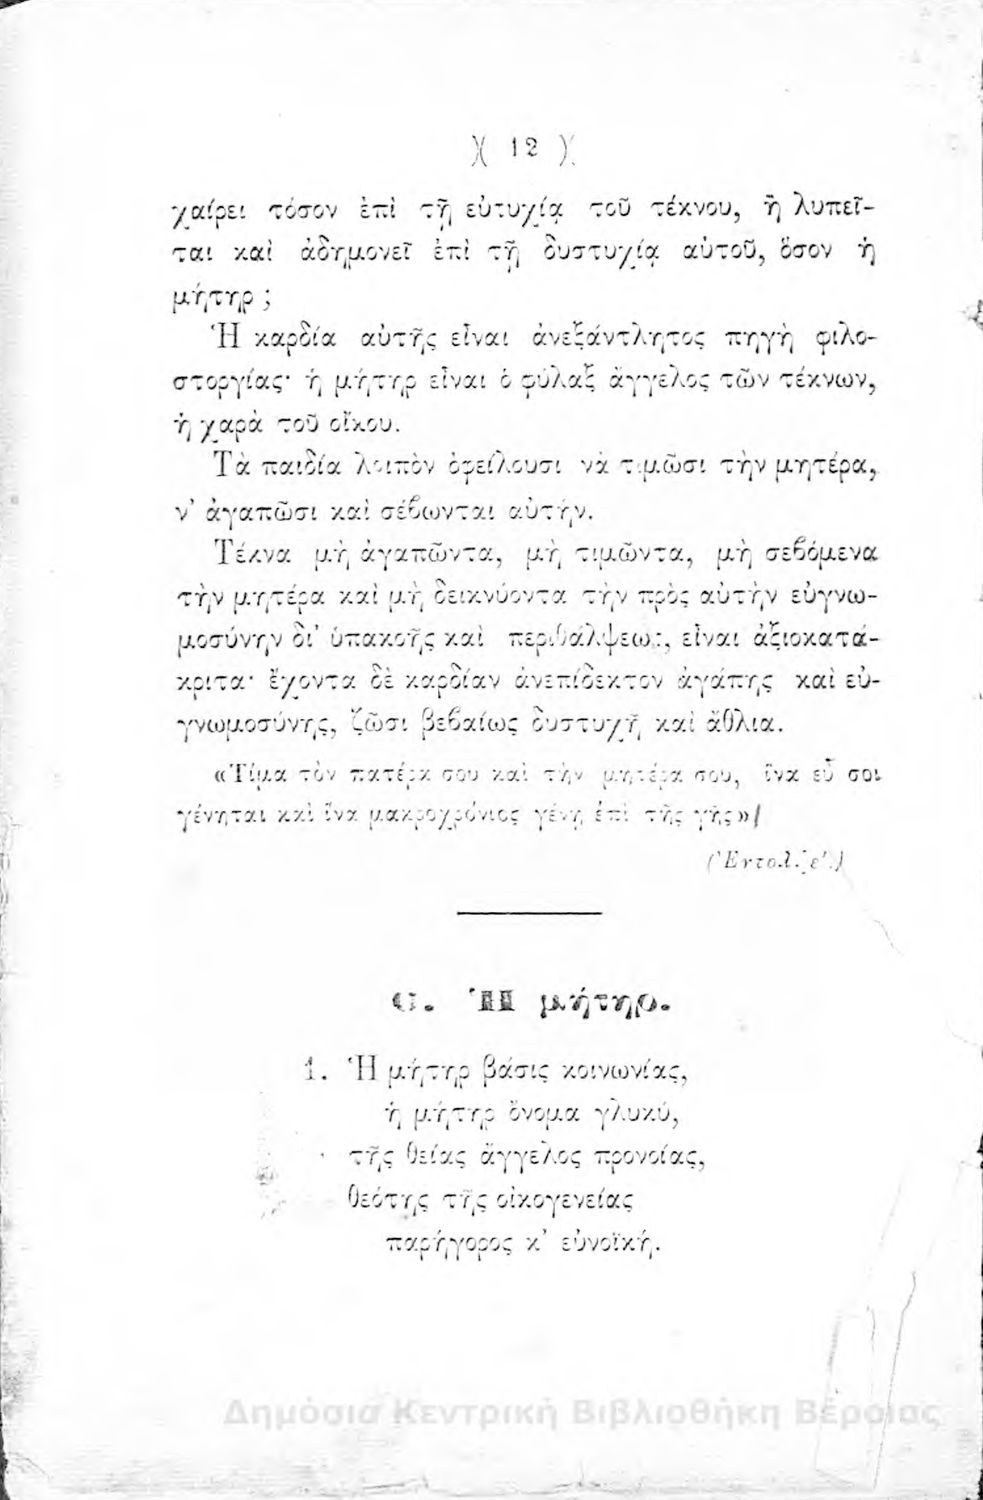 )( 12 )(
χαίρει τόσον ἐπὶ τῇ εὐτυχίᾳ τοῦ τέκνου, ἢ λυπεῖ-
ται καὶ ἀδημονεῖ ἐπὶ τῇ δυστυχίᾳ αὐτοῦ, ὅσον ἡ
μήτηρ ;
Ἡ καρδία αὐτῆς εἶναι ἀνεξάντλητος πηγὴ φιλο-
στοργίας· ἡ μήτηρ εἶναι ὁ φύλαξ ἄγγελος τῶν τέκνων,
ἡ χαρὰ τοῦ οἴκου.
Τὰ παιδία λοιπὸν ὀφείλουσι νὰ τιμῶσι τὴν μητέρα,
ν’ ἀγαπῶσι καὶ σέβωνται αὐτήν.
Τέκνα μὴ ἀγαπῶντα, μὴ τιμῶντα, μὴ σεβόμενα
τὴν μητέρα καὶ μὴ δεικνύοντα τὴν πρὸς αὐτὴν εὐγνω-
μοσύνην δι’ ὑπακοῆς καὶ περιθάλψεως, εἶναι ἀξιοκατά-
κριτα· ἔχοντα δὲ καρδίαν ἀνεπίδεκτον ἀγάπης καὶ εὐ-
γνωμοσύνης, ζῶσι βεβαίως δυστυχῆ καὶ ἄθλια.
«Τίμα τὸν πατέρα σου καὶ τὴν μητέρα σου, ἵνα εὖ σοι
γένηται καὶ ἵνα μακροχρόνιος γένῃ ἐπὶ τῆς γῆς»
(Ἐντολὴ ε'.)
Ἡ μήτηρ.
1. Ἡ μήτηρ βάσις κοινωνίας,
ἡ μήτηρ ὄνομα γλυκύ,
τῆς θείας ἄγγελος προνοίας,
θεότης τῆς οἰκογενείας
παρήγορος κ’ εὐνοϊκή.
Δημόσια Κεντρική Βιβλιοθήκη Βέροιας